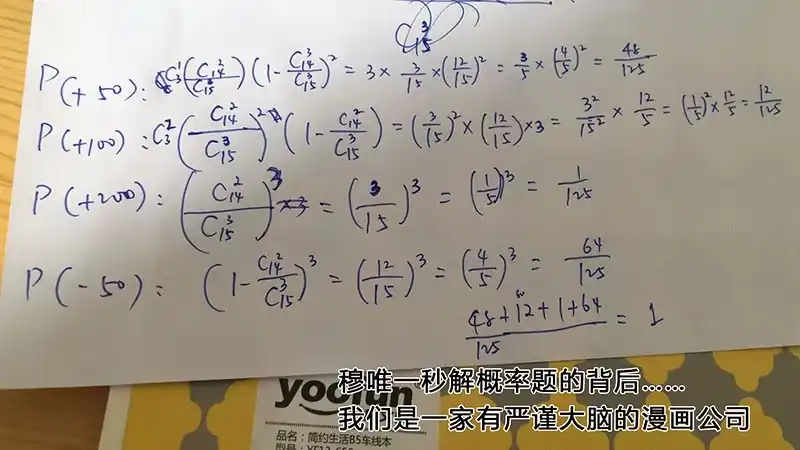 C₁₅³
P(+50): C₃¹(C₁₄²/C₁₅³)(1-C₁₄³/C₁₅³)² = 3×3/15×(12/15)² = 3/5×(4/5)² = 48/125
P(+100): C₃²(C₁₄²/C₁₅³)²(1-C₁₄²/C₁₅³) = (3/15)²×(12/15)×3 = 3²/15²×12/5 = (1/5)²×12/5 = 12/125
P(+200): (C₁₄²/C₁₅³)³ = (3/15)³ = (1/5)³ = 1/125
P(-50): (1-C₁₄²/C₁₅³)³ = (12/15)³ = (4/5)³ = 64/125
48+12+1+64/125 = 1
穆唯一秒解概率题的背后……
我们是一家有严谨大脑的漫画公司
yoofun
品名：简约生活B5车线本